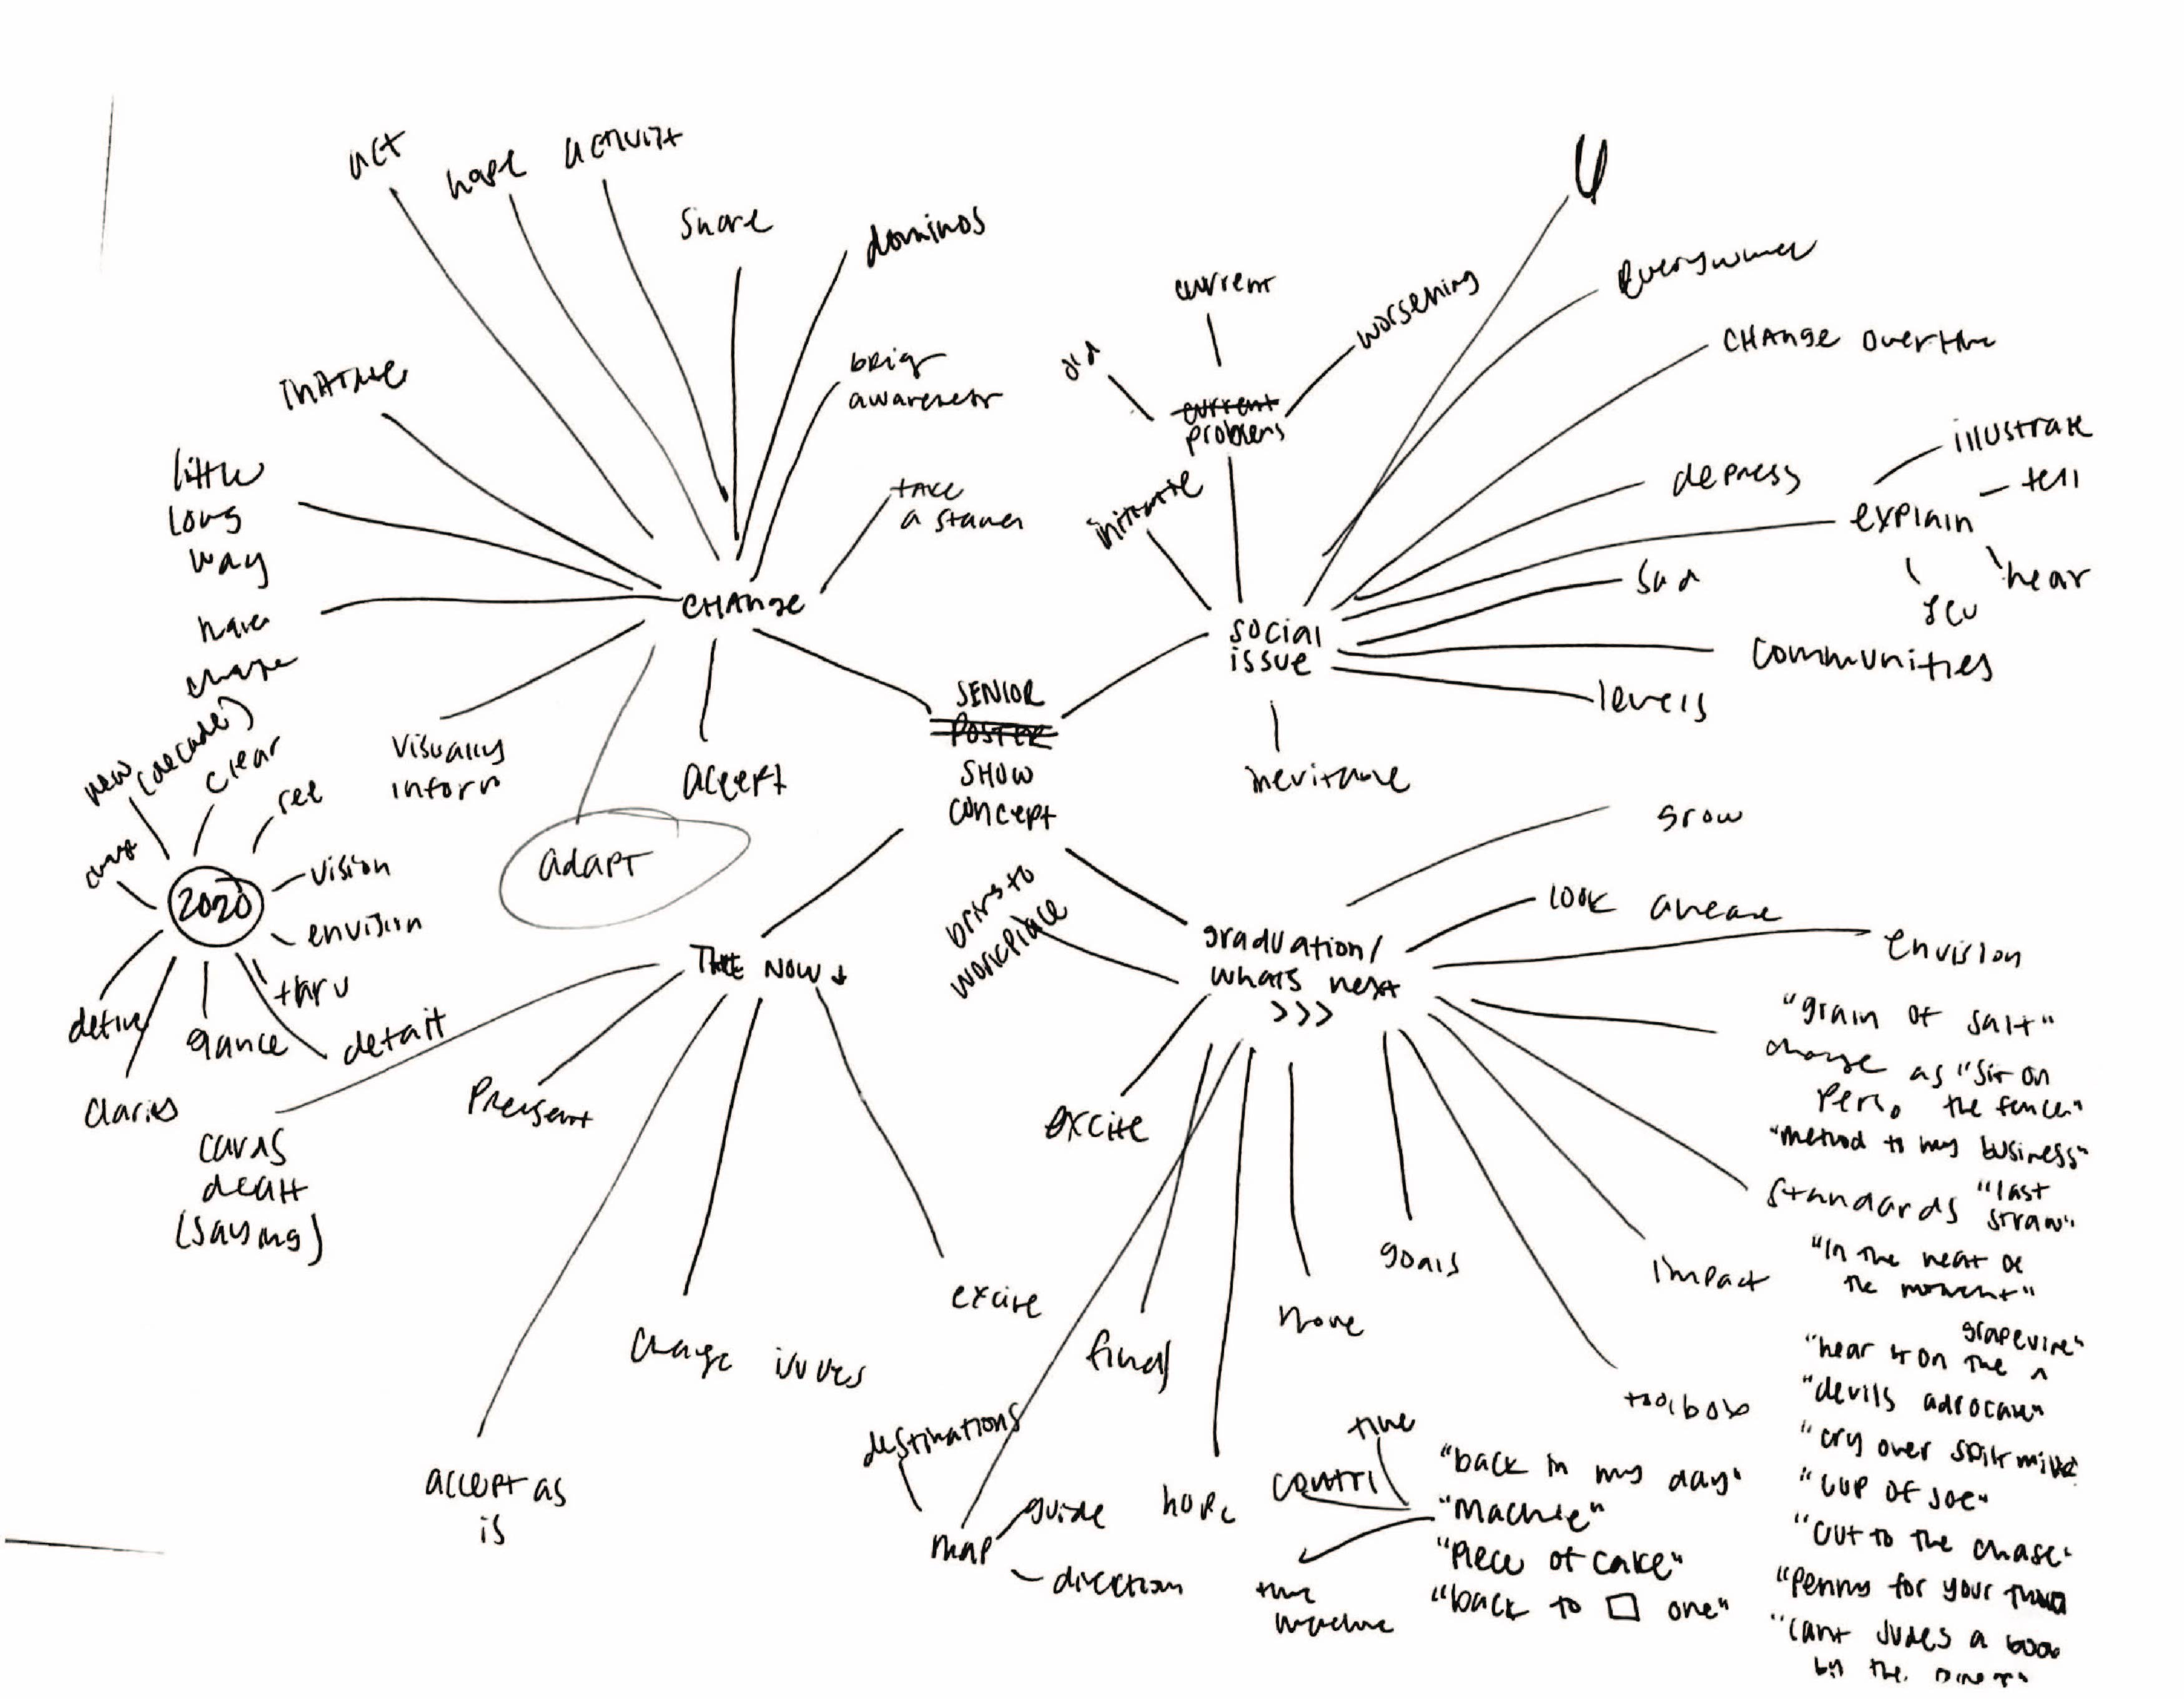 act
hope
activity
share
dominos
current
worsening
old
everywhere
CHANGE over time
initiate
brig
awareness
current
problems
illustrate
tell
explain
hear
depress
little
long
way
take
a stance
sad
CHANGE
social
issue
communities
levels
inevitable
SENIOR
POSTER
SHOW
concept
have
change
visually
inform
accept
adapt
new (decade)
clear
see
2020
vision
envision
thru
detail
define
glance
THE NOW
graduation/
whats next
>>>
grow
look ahead
envision
brings to
workplace
"grain of salt"
change as
"sit on
the fence"
"method to my business"
standards
"last
straw"
"in the heat of
the moment"
impact
"hear it on the grapevine"
"devils advocate"
"cry over spilt milk"
"cup of joe"
"cut to the chase"
"penny for your
"cant judge a book
by the
Present
cards
dealt
(saying)
excite
excite
change issues
accept as
is
final
goals
toolbox
destinations
map
guide
direction
hope
time
"back in my day"
"Machine"
"Piece of cake"
"back to □ one"
time
machine